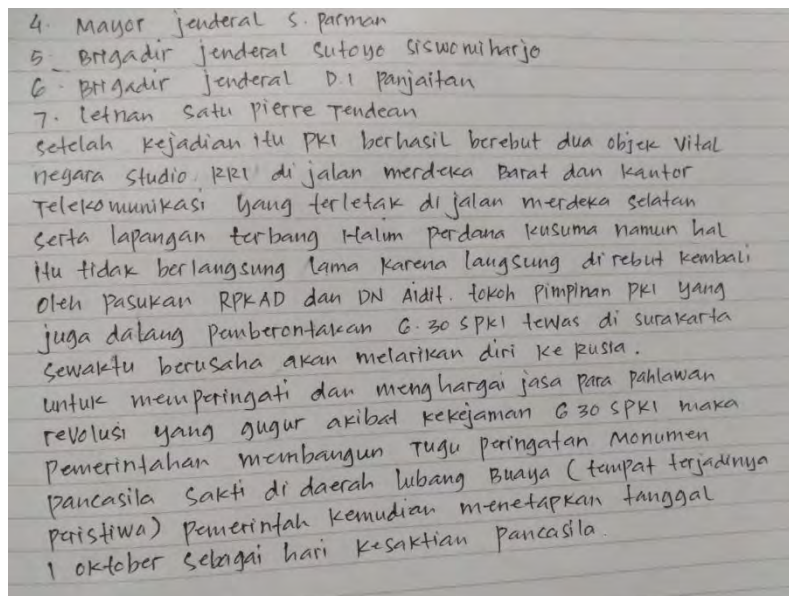 4. Mayor jenderal S. parman
5 Brigadir jenderal Sutoyo Siswomiharjo
6. Brigadir jenderal D.I panjaitan
7. letnan satu pierre Tendean
setelah kejadian itu PKI berhasil berebut dua objek vital
negara studio RRI di jalan merdeka Barat dan kantor
Telekomunikasi yang terletak di jalan merdeka selatan
serta lapangan terbang Halim perdana kusuma namun hal
itu tidak berlangsung lama karena langsung di rebut kembali
oleh pasukan RPKAD dan DN Aidit. tokoh pimpinan PKI yang
juga dalang pemberontakan G.30 SPKI tewas di surakarta
sewaktu berusaha akan melarikan diri ke Rusia.
untuk memperingati dan menghargai jasa para pahlawan
revolusi yang gugur akibat kekejaman G 30 SPKI maka
pemerintahan membangun Tugu peringatan Monumen
pancasila sakti di daerah lubang Buaya (tempat terjadinya
peristiwa) pemerintah kemudian menetapkan tanggal
1 oktober sebagai hari kesaktian pancasila.